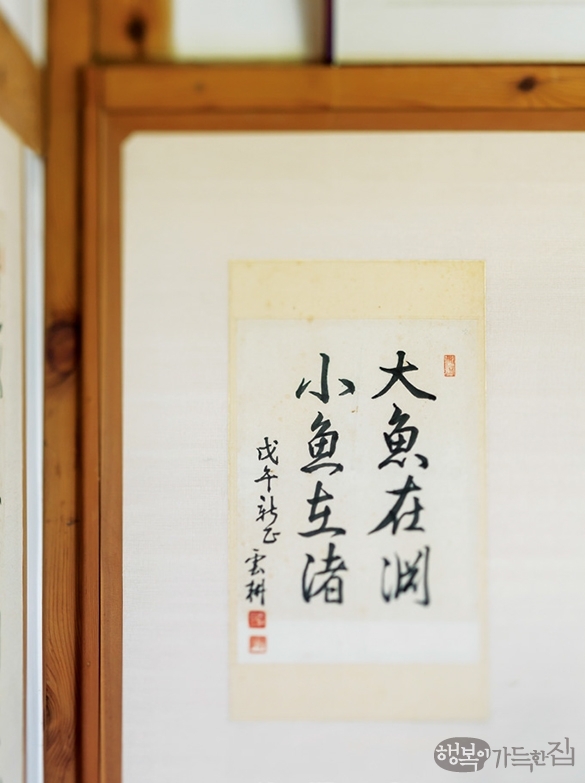 大魚在渊
小魚在渚
戊午新正 雲耕
행복이가득한집